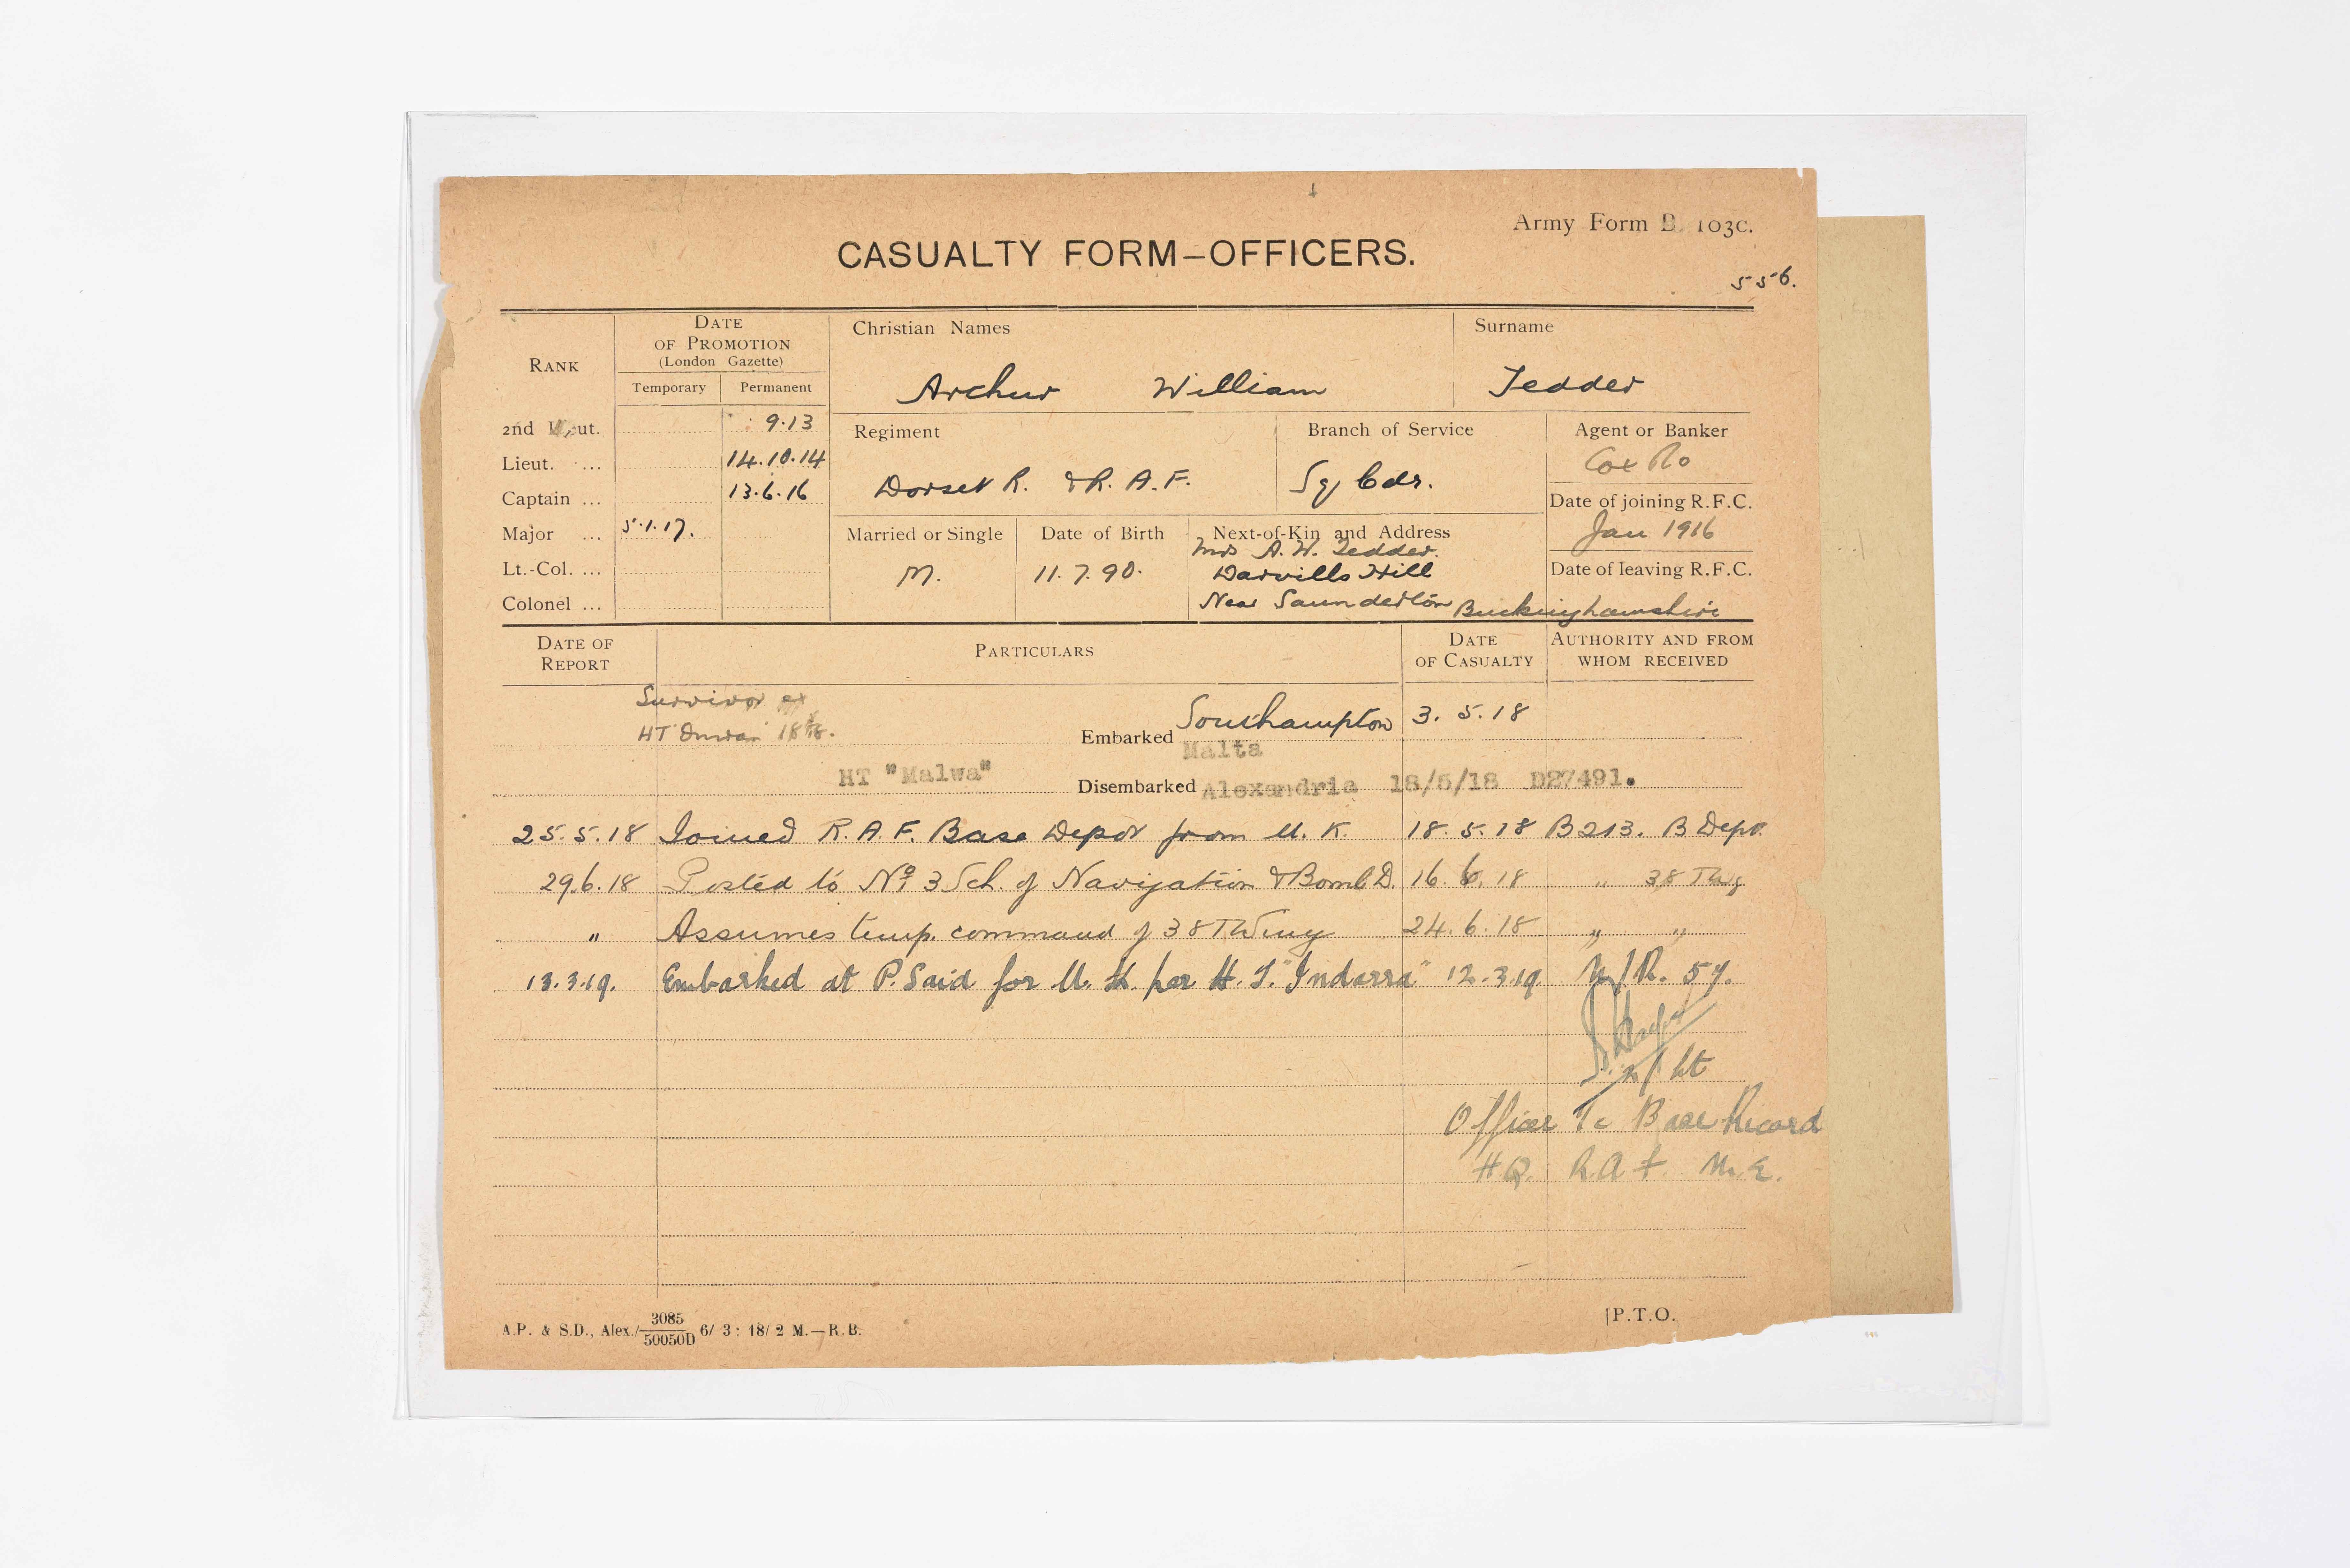 Army Form B. 103C.
CASUALTY FORM–OFFICERS.
556.
RANK
DATE OF PROMOTION (London Gazette)
Temporary Permanent
Christian Names
Surname
Arthur William
Tedder
2nd Lieut. 9.13
Lieut. ... 14.10.14
Captain ... 13.6.16
Major ... 5.1.17.
Lt.-Col. ...
Colonel ...
Regiment
Dorset R. & R.A.F.
Branch of Service
Sq Cdr.
Agent or Banker
Cox & Co
Date of joining R.F.C.
Jan 1916
Date of leaving R.F.C.
Married or Single
M.
Date of Birth
11.7.90.
Next-of-Kin and Address
Mrs A.W. Tedder.
Darvills Hill
Near Saunderton Buckinghamshire
DATE OF REPORT
PARTICULARS
DATE OF CASUALTY
AUTHORITY AND FROM WHOM RECEIVED
Survivor ex
HT
Embarked Southampton 3.5.18
Malta
HT "Malwa" Disembarked Alexandria 18/5/18 D27491.
25.5.18 Joined R.A.F. Base Depot from U.K. 18.5.18 B213. B Depot
29.6.18 Posted to No 3 Sch. of Navigation & Bomb D. 16.6.18 " 38 TWg
" Assumes temp. command of 38 TWing 24.6.18 " "
13.3.19. Embarked at P. Said for U.K. per H.T. "Indarra" 12.3.19 N/R. 57.
Lt
Officer I/c Base Record
HQ. R.A.F. M.E.
A.P. & S.D., Alex./3085/50050D 6/3:18/2 M.—R.B.
[P.T.O.